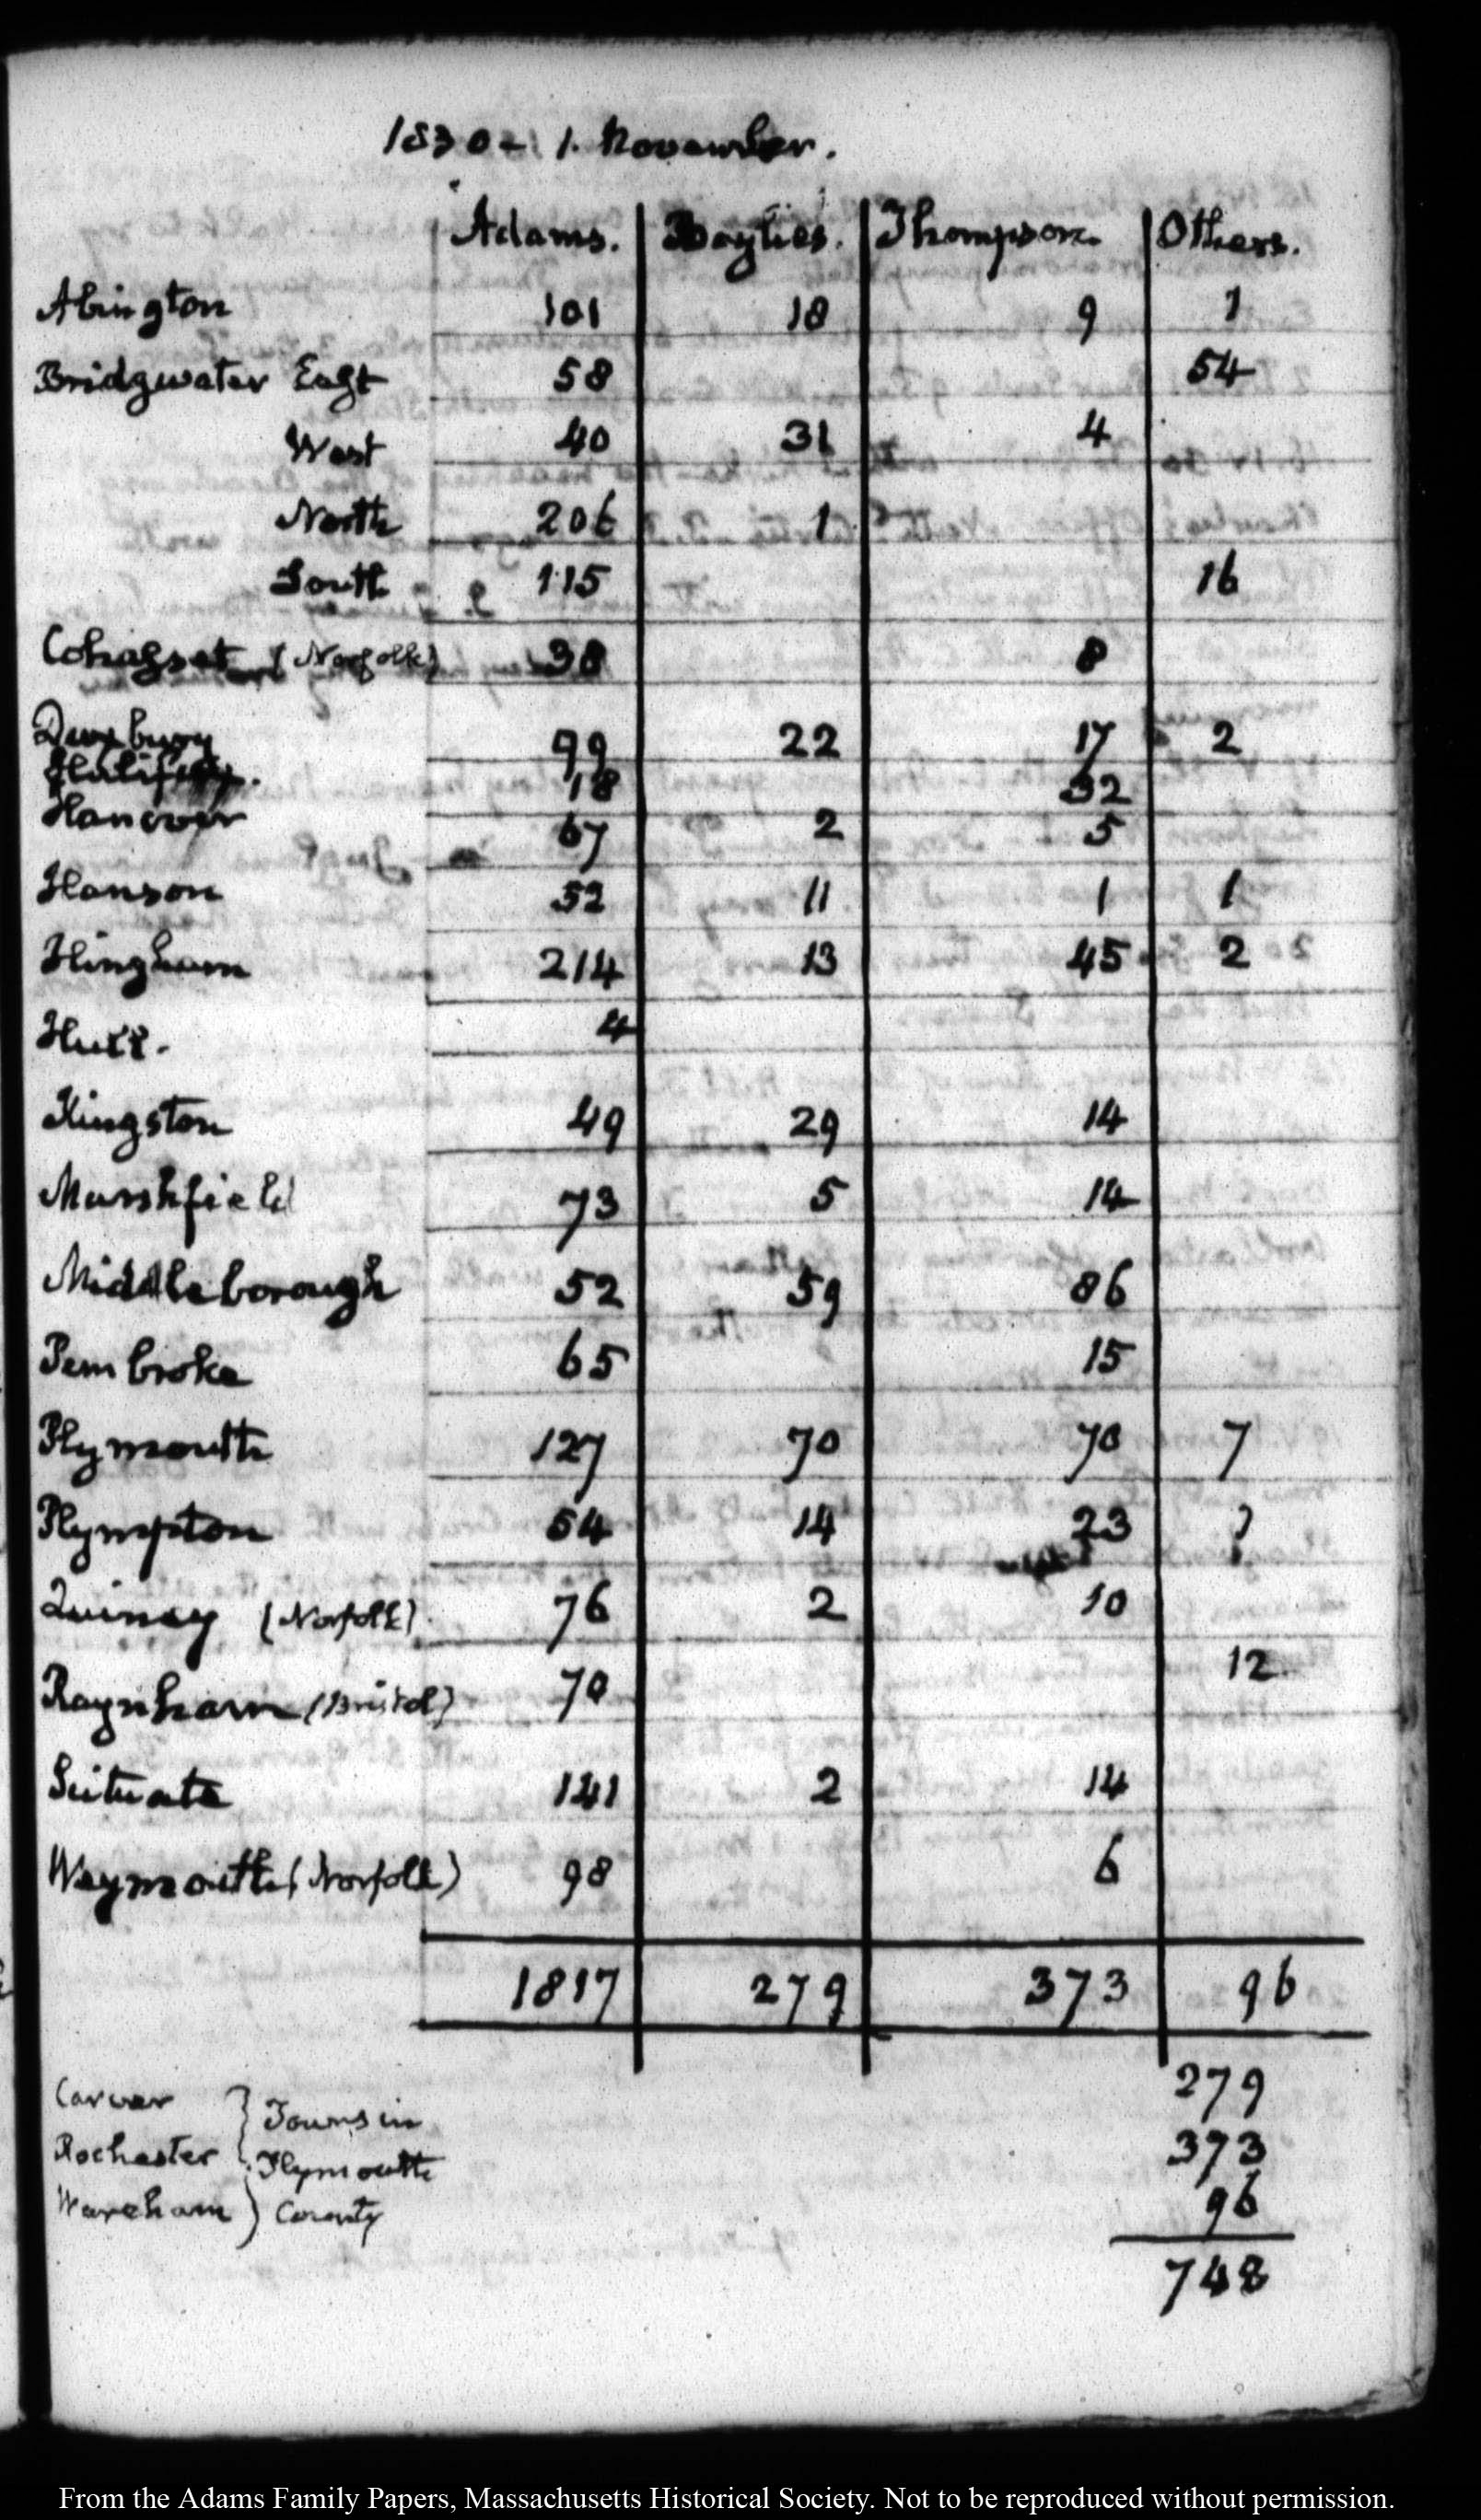 1830 - 1. November.
Adams. Baylies. Thompson. Others.
Abington 101 18 9 1
Bridgwater East 58 54
West 40 31 4
North 206 1
South 115 16
Cohasset (Norfolk) 38 8
Duxbury 99 22 17 2
Halifax. 18 32
Hanover 67 2 5
Hanson 52 11 1 1
Hingham 214 13 45 2
Hull. 4
Kingston 49 29 14
Marshfield 73 5 14
Middleborough 52 59 86
Pembroke 65 15
Plymouth 127 70 70 7
Plympton 54 14 23 1
Quincy (Norfolk) 76 2 10
Raynham (Bristol) 70 12
Scituate 141 2 14
Weymouth (Norfolk) 98 6
1817 279 373 96
279
373
96
748
Carver } Towns in
Rochester } Plymouth
Wareham } County
From the Adams Family Papers, Massachusetts Historical Society. Not to be reproduced without permission.